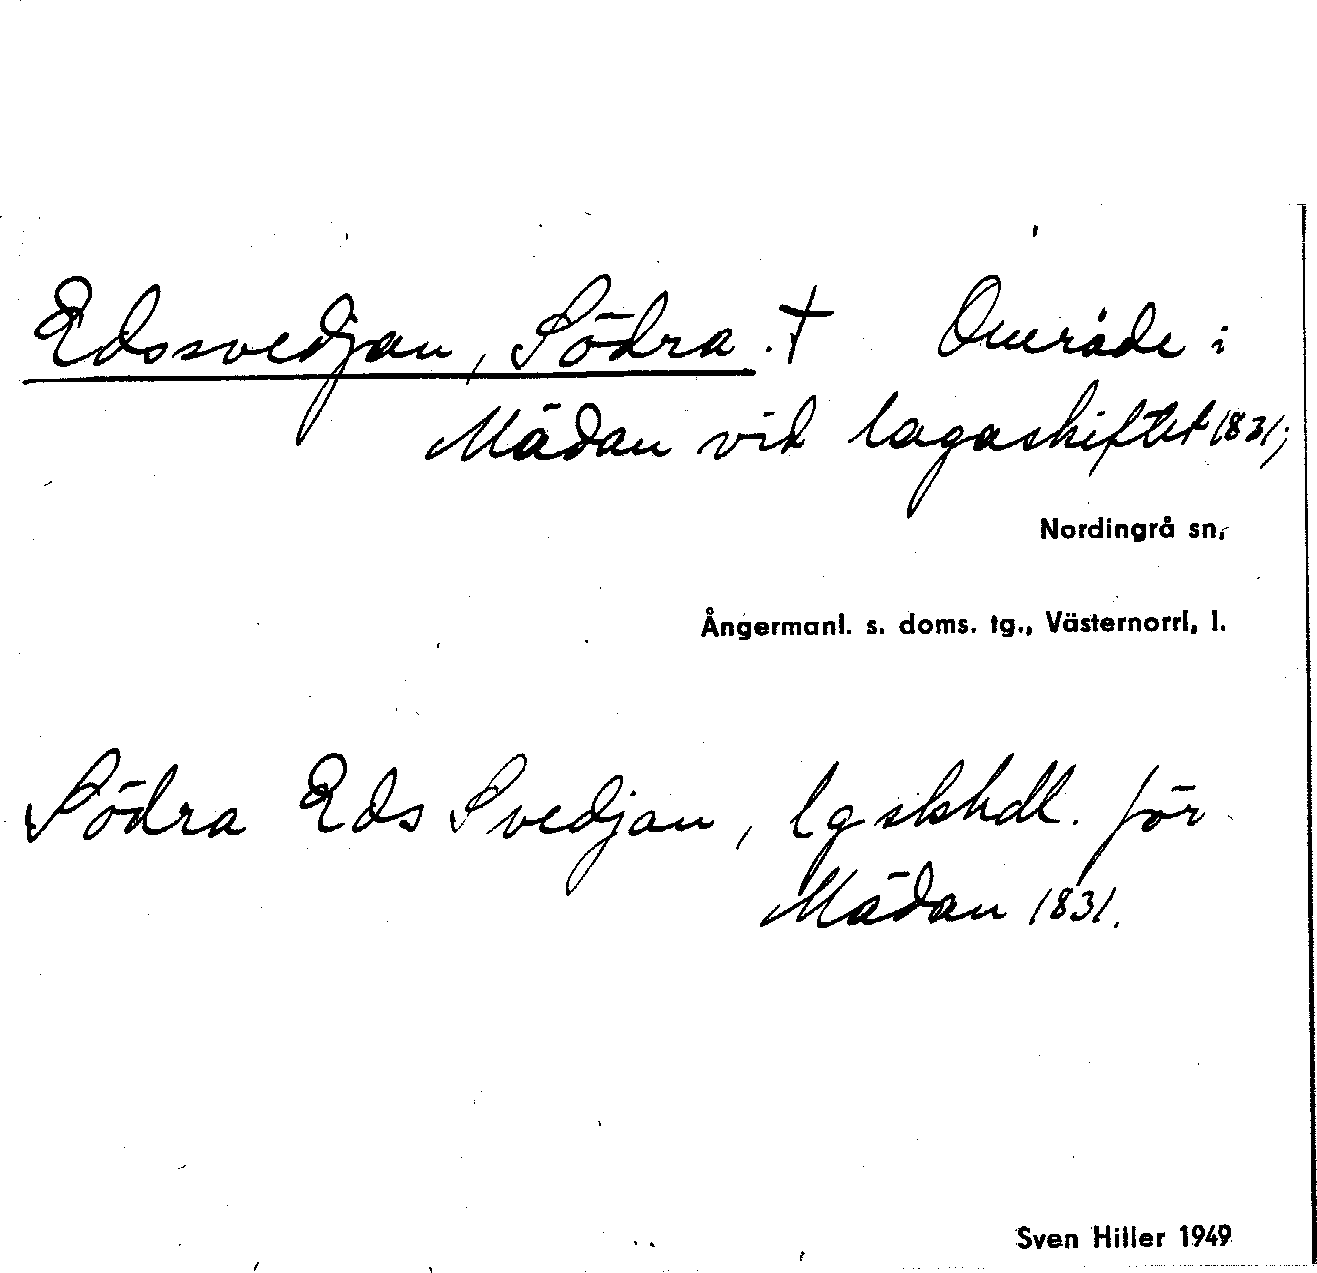 Edssvedjan, Södra. † Område i
Mädan vid lagaskiftet 1831;
Nordingrå sn,
Ångermanl. s. doms. tg., Västernorrl, l.
Södra Eds Svedjan, lgskhdl. för
Mädan 1831.
Sven Hiller 1949